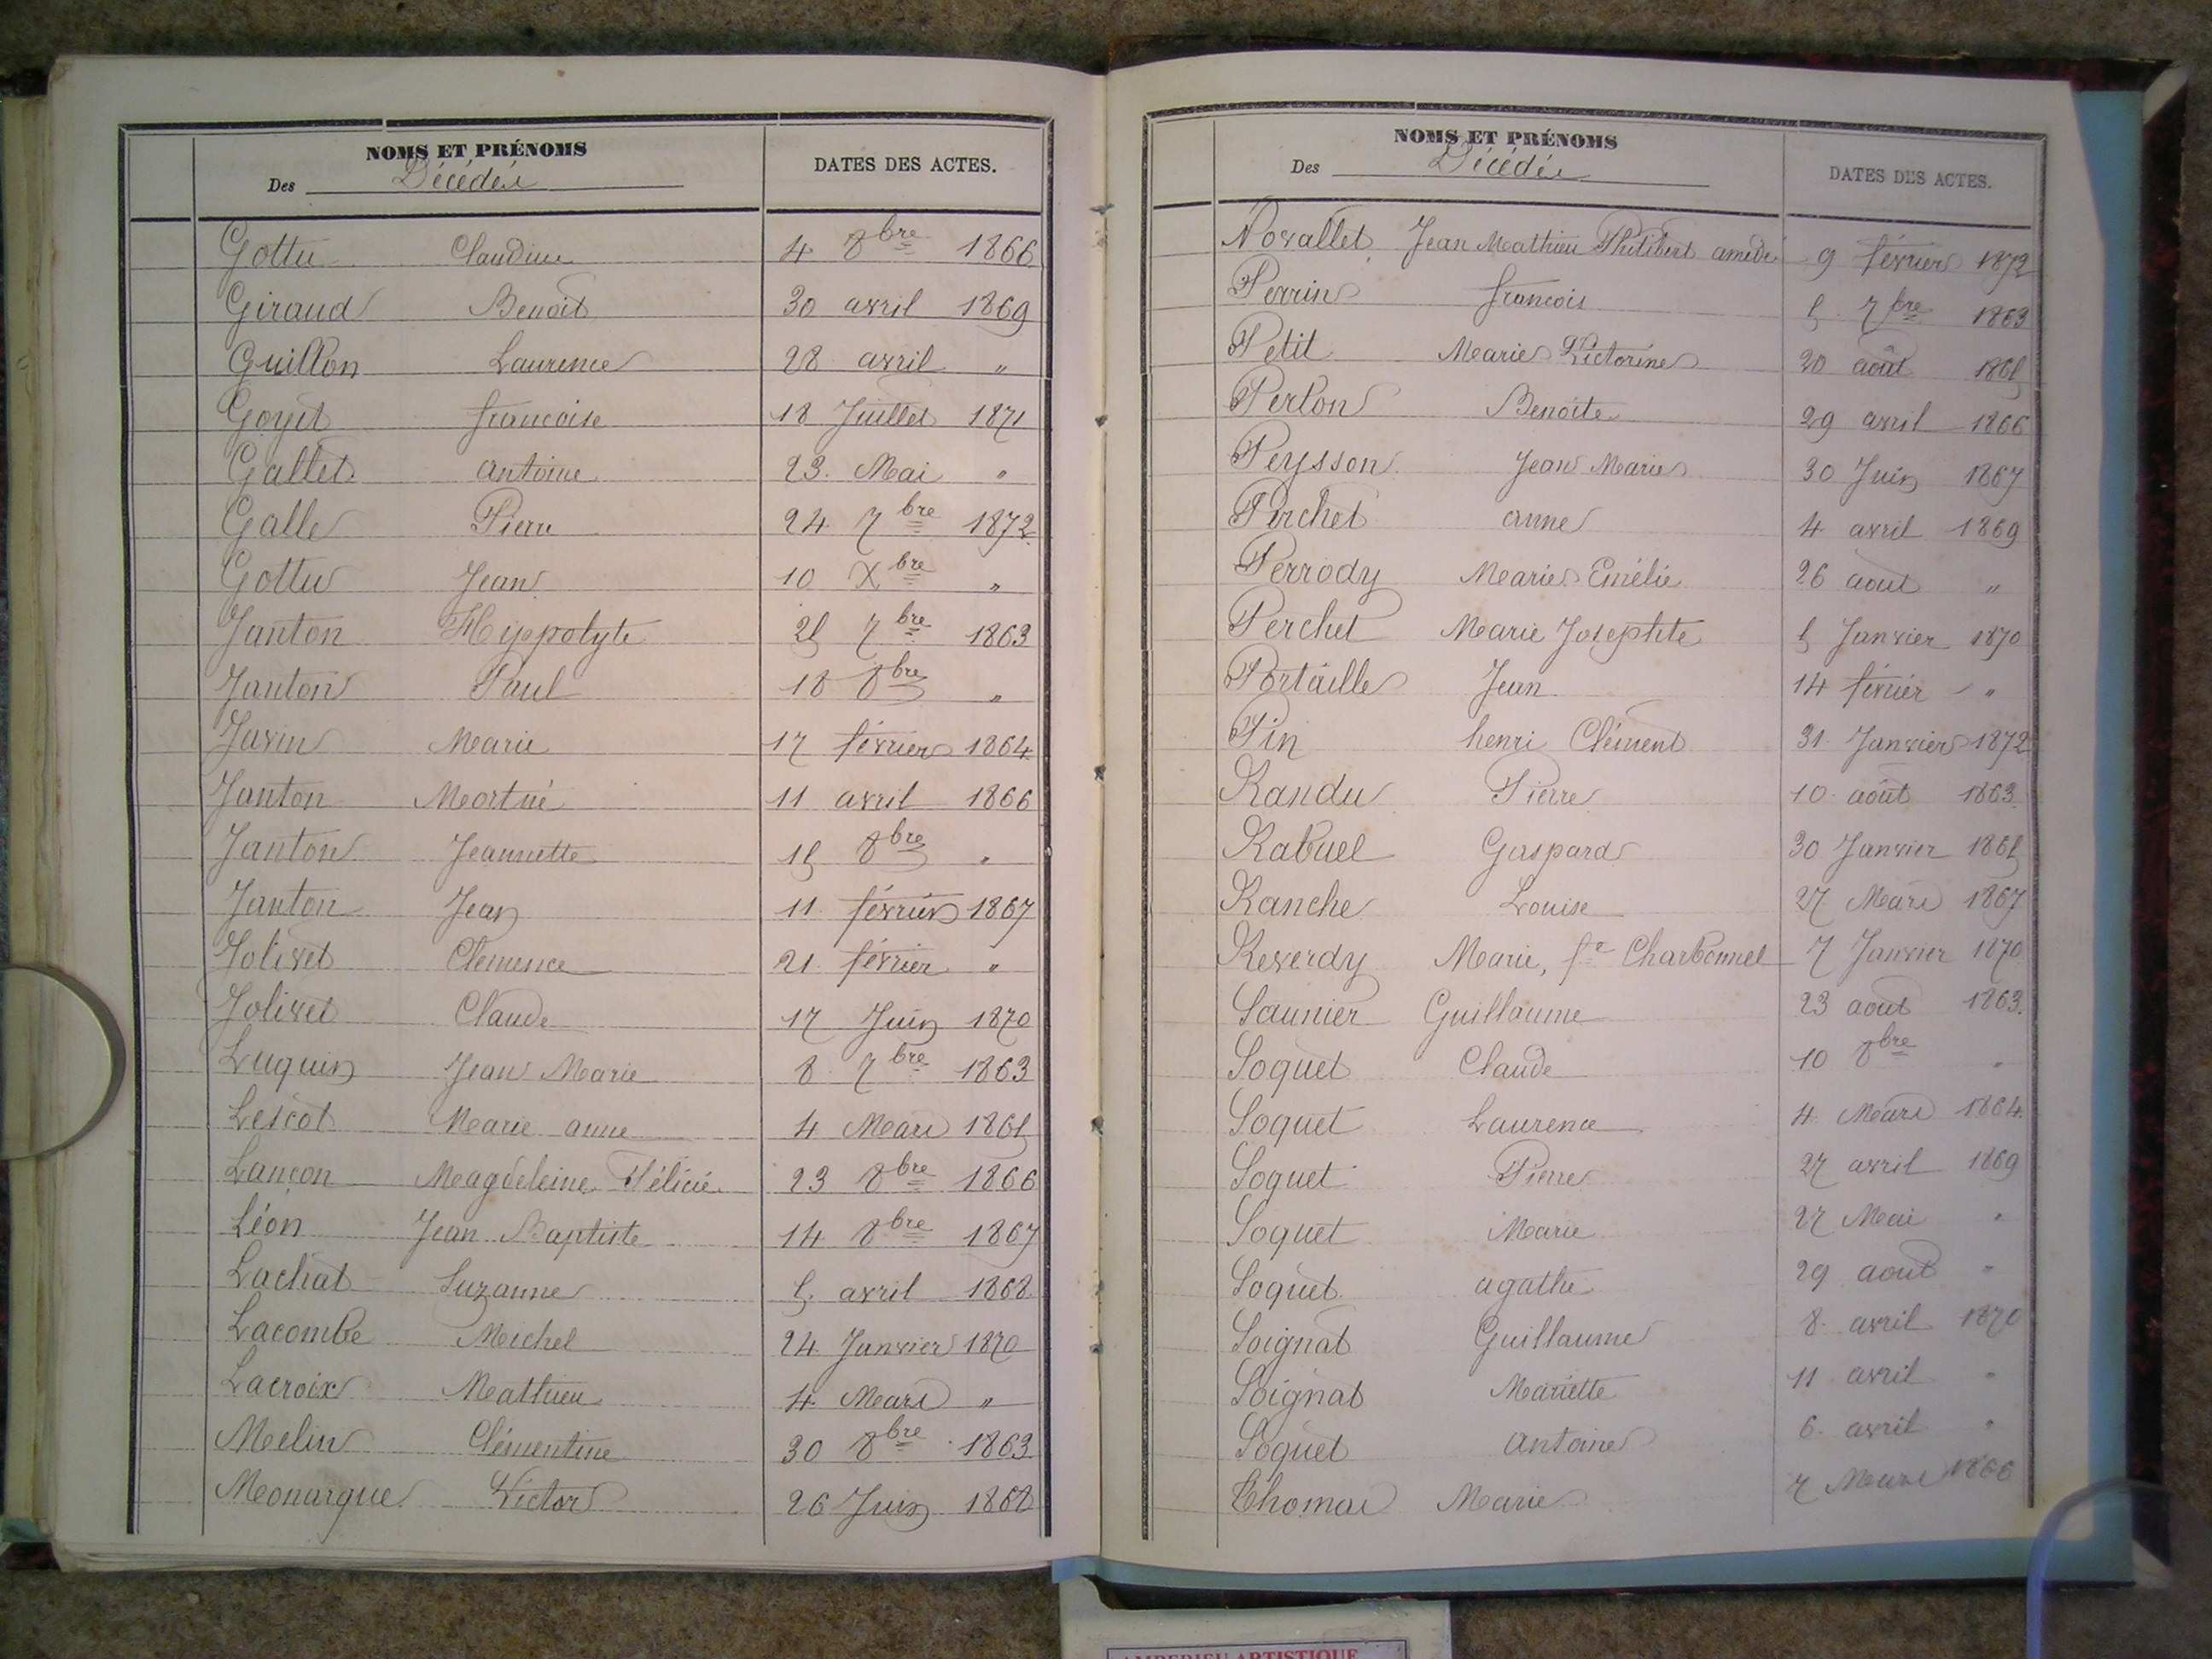 NOMS ET PRÉNOMS
Des Décédés
DATES DES ACTES.
Gottu Claudine 4 8bre 1866
Giraud Benoit 30 avril 1869
Guillon Laurence 28 avril "
Goyet francoise 18 Juillet 1871
Gallet antoine 23 Mai "
Galle Pierre 24 7bre 1872
Gottu Jean 10 Xbre "
Janton Hyppolyte 25 7bre 1863
Janton Paul 18 8bre "
Javin Marie 17 février 1864
Janton Mortné 11 avril 1866
Janton Jeannette 15 8bre "
Janton Jean 11 février 1867
Jolivet Clemence 21 février "
Jolivet Claude 17 Juin 1870
Luquin Jean Marie 8 7bre 1863
Lescot Marie anne 4 Mars 1865
Lançon Magdeleine Félicie 23 8bre 1866
Léon Jean Baptiste 14 8bre 1867
Lachat Suzanne 5 avril 1868
Lacombe Michel 24 Janvier 1870
Lacroix Mathieu 4 Mars "
Melin Clémentine 30 8bre 1863
Monarque Victor 26 Juin 1868
NOMS ET PRÉNOMS
Des Décédés
DATES DES ACTES.
Novallet Jean Mathieu Philibert amédé 9 février 1872
Perrin francois 5 7bre 1863
Petit Marie Victorine 20 août 1865
Perlon Benoite 29 avril 1866
Peysson Jean Marie 30 Juin 1867
Perchet anne 4 avril 1869
Perrody Marie Emélie 26 aout "
Perchet Marie Josephte 5 Janvier 1870
Portaille Jean 14 février "
Pin henri Clément 31 Janvier 1872
Randu Pierre 10 août 1863
Rabuel Gaspard 30 Janvier 1865
Ranche Louise 27 Mars 1867
Reverdy Marie, fe Charbonnel 7 Janvier 1870
Saunier Guillaume 23 aout 1863
Soquet Claude 10 8bre "
Soquet Laurence 4 Mars 1864
Soquet Pierre 27 avril 1869
Soquet Marie 27 Mai "
Soquet agathe 29 aout "
Soignat Guillaume 8 avril 1870
Soignat Mariette 11 avril "
Soquet antoine 6 avril "
Thomas Marie 7 Mars 1866
AMBERIEU ARTISTIQUE